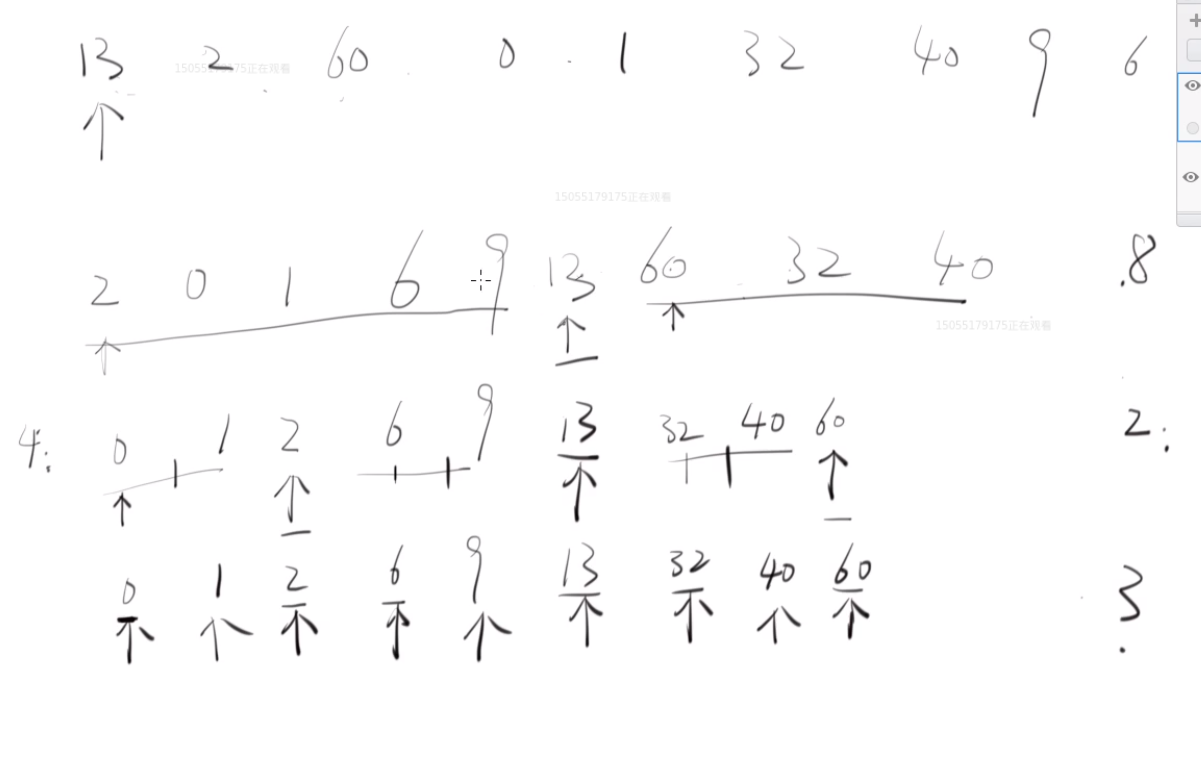 13 2 60 0 1 32 40 9 6
15055179175正在观看
15055179175正在观看
2 0 1 6 9 13 60 32 40 .8
15055179175正在观看
4: 0 1 2 6 9 13 32 40 60 2:
0 1 2 6 9 13 32 40 60 3